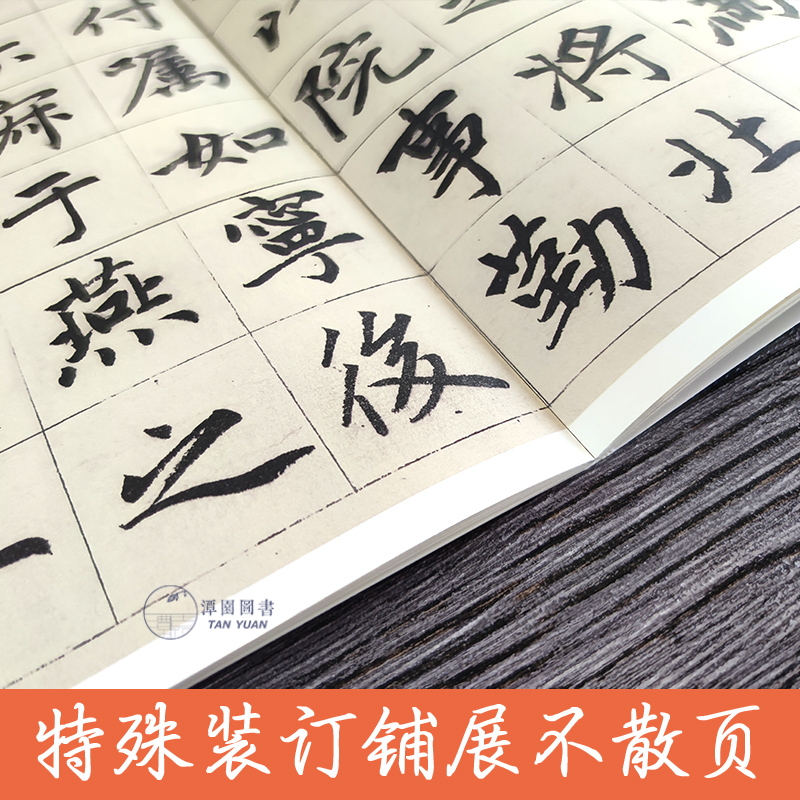 將壯
院事勤
付囑如寧後
于燕之
一
潭園圖書
TAN YUAN
特殊装订铺展不散页